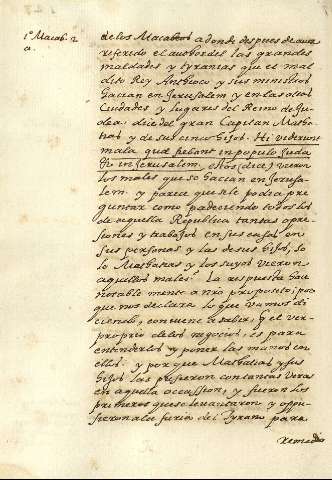 1º Macab. 2
a.
de los Macabeos adonde despues de auer
referido el author dellas grandes
maldades y tyranias que el mal
dito Rey Antioco y sus ministros
hacian en Jerusalem y en las otras
Ciudades y lugares del Reino de Ju
dea. dice del gran Capitan Matha
tias y de sus cinco hijos. Hi viderunt
mala quæ fiebant in populo Juda
& in Jerusalem. estos (dice) vieron
los males que se hacian en Jerusa
lem. y parece que se podia pre
guntar como padeciendo todos los
de aquella Republica tantas opre
siones y trabajos en sus casas en
sus personas y las de sus hijos, so
lo Mathatias y los suyos vieron
aquellos males? La respuesta
notable mente a nro proposito; por
que nos declara lo que vamos di
ciendo, conviene a saber, q el ver
proprio de los negocios, es para
entenderlos y poner las manos en
ellos. y por que Mathatias y sus
hijos las pusieron con tantas veras
en aquella occassion, y fueron los
primeros que se levantaron y oppu
sieron a la furia del Tyrano para
remedio